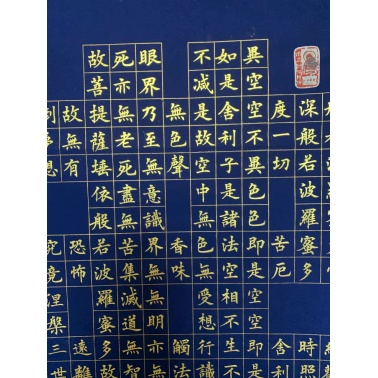 深般若波羅蜜多時照
度一切苦厄舍利
異空空不異色色即是空空即是
如是舍利子是諸法空相不生不
不減是故空中無色無受想行識
無色聲香味觸法
眼界乃至無意識界無無明亦無
死亦無老死盡無苦集滅道無智
故菩提薩埵依般若波羅蜜多故
故無有恐怖遠離
倒夢想究竟涅槃三世